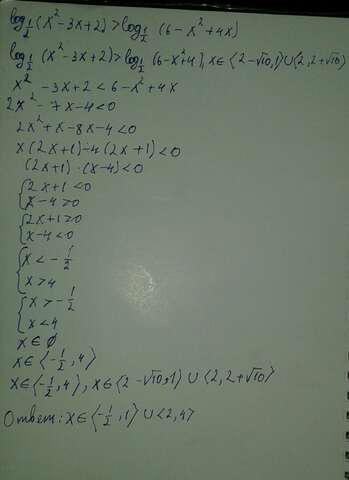 log½ (x²-3x+2) > log½ (6-x²+4x)
log½ (x²-3x+2) > log½ (6-x²4), x∈⟨2-√10,1⟩∪⟨2,2+√10⟩
x² -3x+2 < 6-x²+4x
2x²-7x-4<0
2x²+x-8x-4<0
x(2x+1)-4(2x+1)<0
(2x+1)·(x-4)<0
{2x+1<0
x-4>0
{2x+1>0
x-4<0
{x<-½
x>4
{x>-½
x<4
x∈∅
x∈⟨-½,4⟩
x∈⟨-½,4⟩, x∈⟨2-√10,1⟩ ∪ ⟨2,2+√10⟩
Ответ: x∈⟨-½,1⟩∪⟨2,4⟩